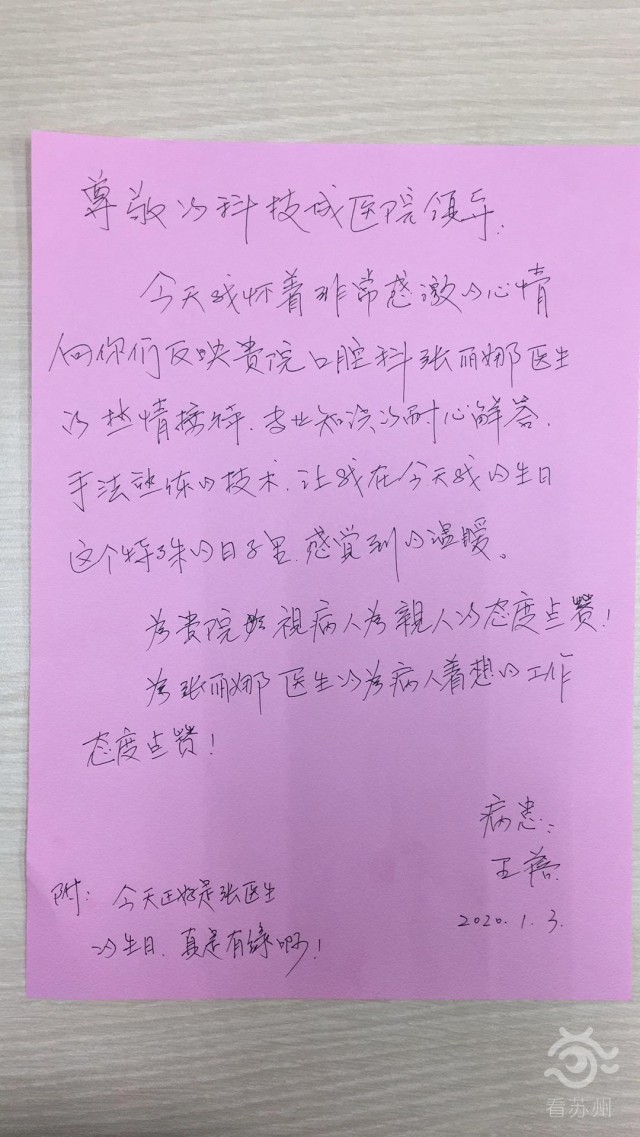 尊敬的科技城医院领导.
今天我怀着非常感激的心情
向你们反映贵院口腔科张丽娜医生
的热情接待.专业知识的耐心解答.
手法熟练的技术.让我在今天我的生日
这个特殊的日子里.感觉到的温暖。
为贵院 視病人为親人的态度点赞!
为张丽娜医生的为病人着想的工作
态度点赞!
病患:
王蓉
2020.1.3.
附: 今天正好是张医生
的生日.真是有缘啊!
看苏州